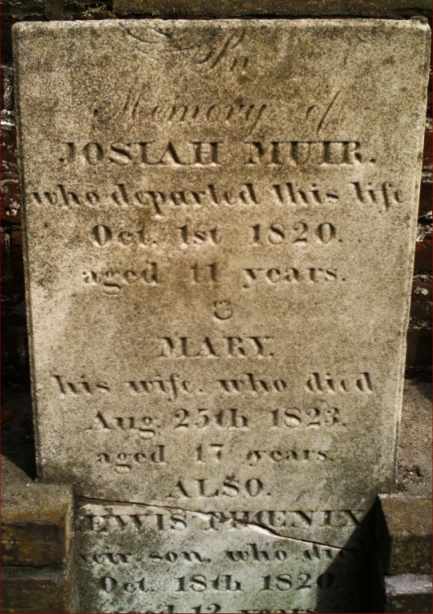 In
Memory of
JOSIAH MUIR.
who departed this life
Oct. 1st 1820.
aged 41 years.
&
MARY.
his wife. who died
Aug. 25th 1823.
aged 47 years.
ALSO.
LEWIS PHŒNIX
their son. who died
Oct. 18th 1820
aged 12 years